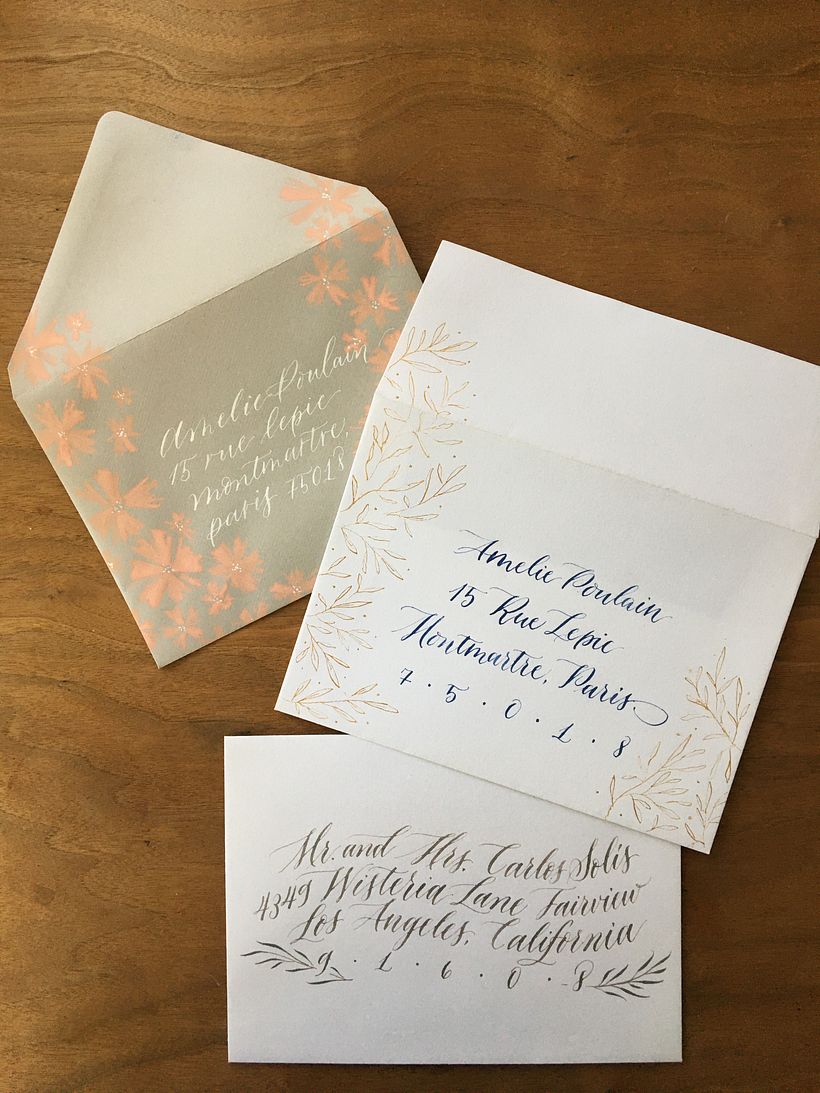 Amelie Poulain
15 rue lepic
montmartre,
paris 75018
Amelie Poulain
15 Rue Lepic
Montmartre, Paris
7 · 5 · 0 · 1 · 8
Mr. and Mrs. Carlos Solis
4349 Wisteria Lane Fairview
Los Angeles, California
9 · 1 · 6 · 0 · 8